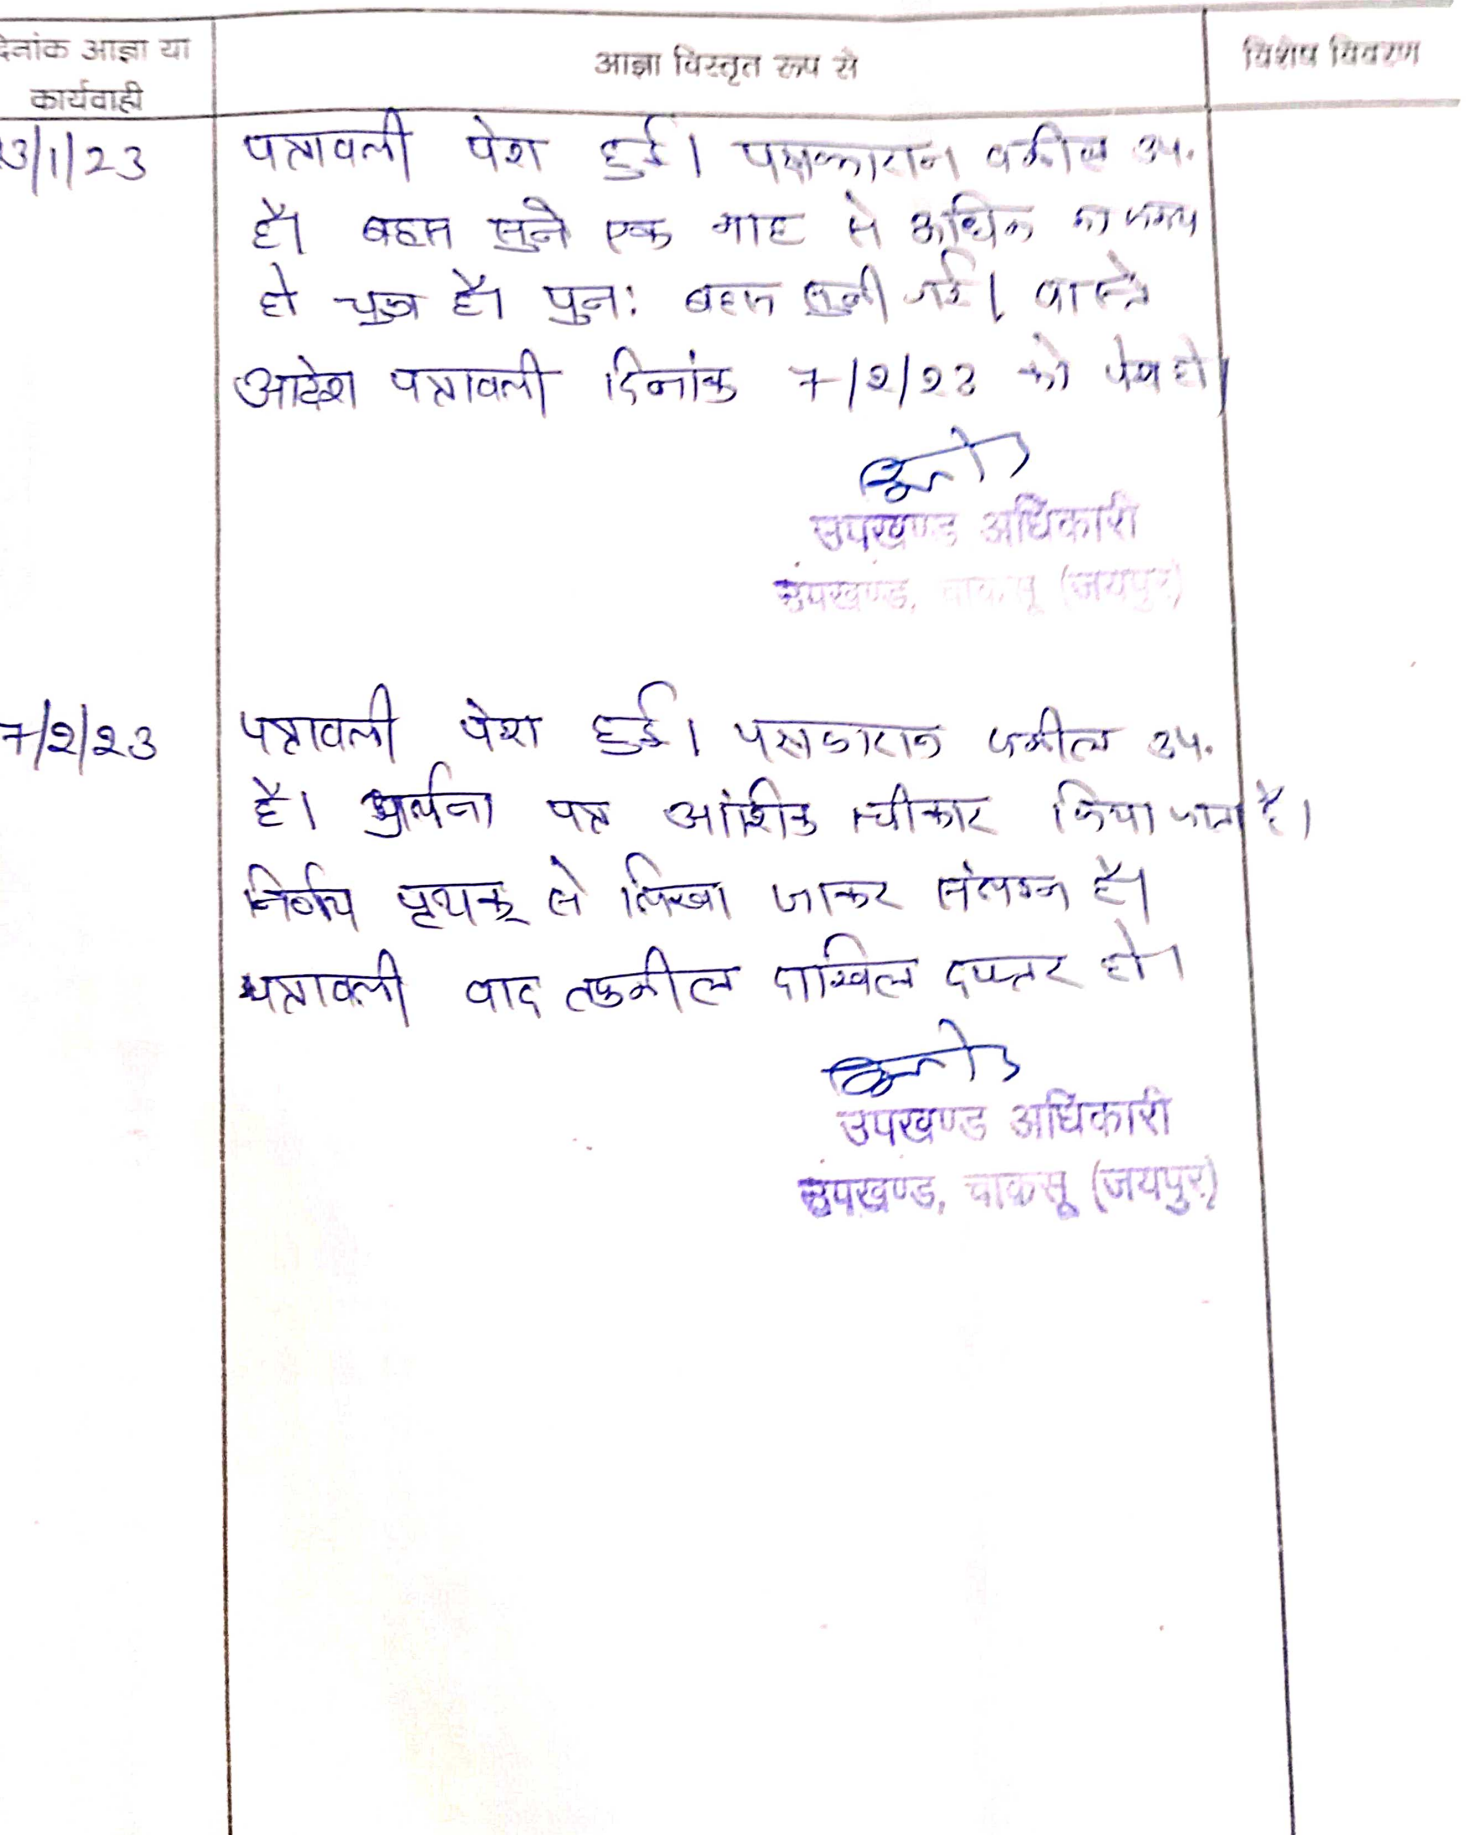 दिनांक आज्ञा या
कार्यवाही
आज्ञा विस्तृत रूप से
विशेष विवरण
3/1/23
पत्रावली पेश हुई। पक्षकारान वकील उप.
है। बहस सुने एक माह से अधिक का समय
हो चुका है। पुनः बहस सुनी गई। वास्ते
आदेश पत्रावली दिनांक 7/2/23 को पेश हो।
उपखण्ड अधिकारी
उपखण्ड, चाकसू (जयपुर)
7/2/23
पत्रावली पेश हुई। पक्षकारान वकील उप.
है। प्रार्थना पत्र आंशिक स्वीकार किया जाता है।
निर्णय पृथक् से लिखा जाकर संलग्न है।
पत्रावली बाद तकमील दाखिल दफ्तर हो।
उपखण्ड अधिकारी
उपखण्ड, चाकसू (जयपुर)